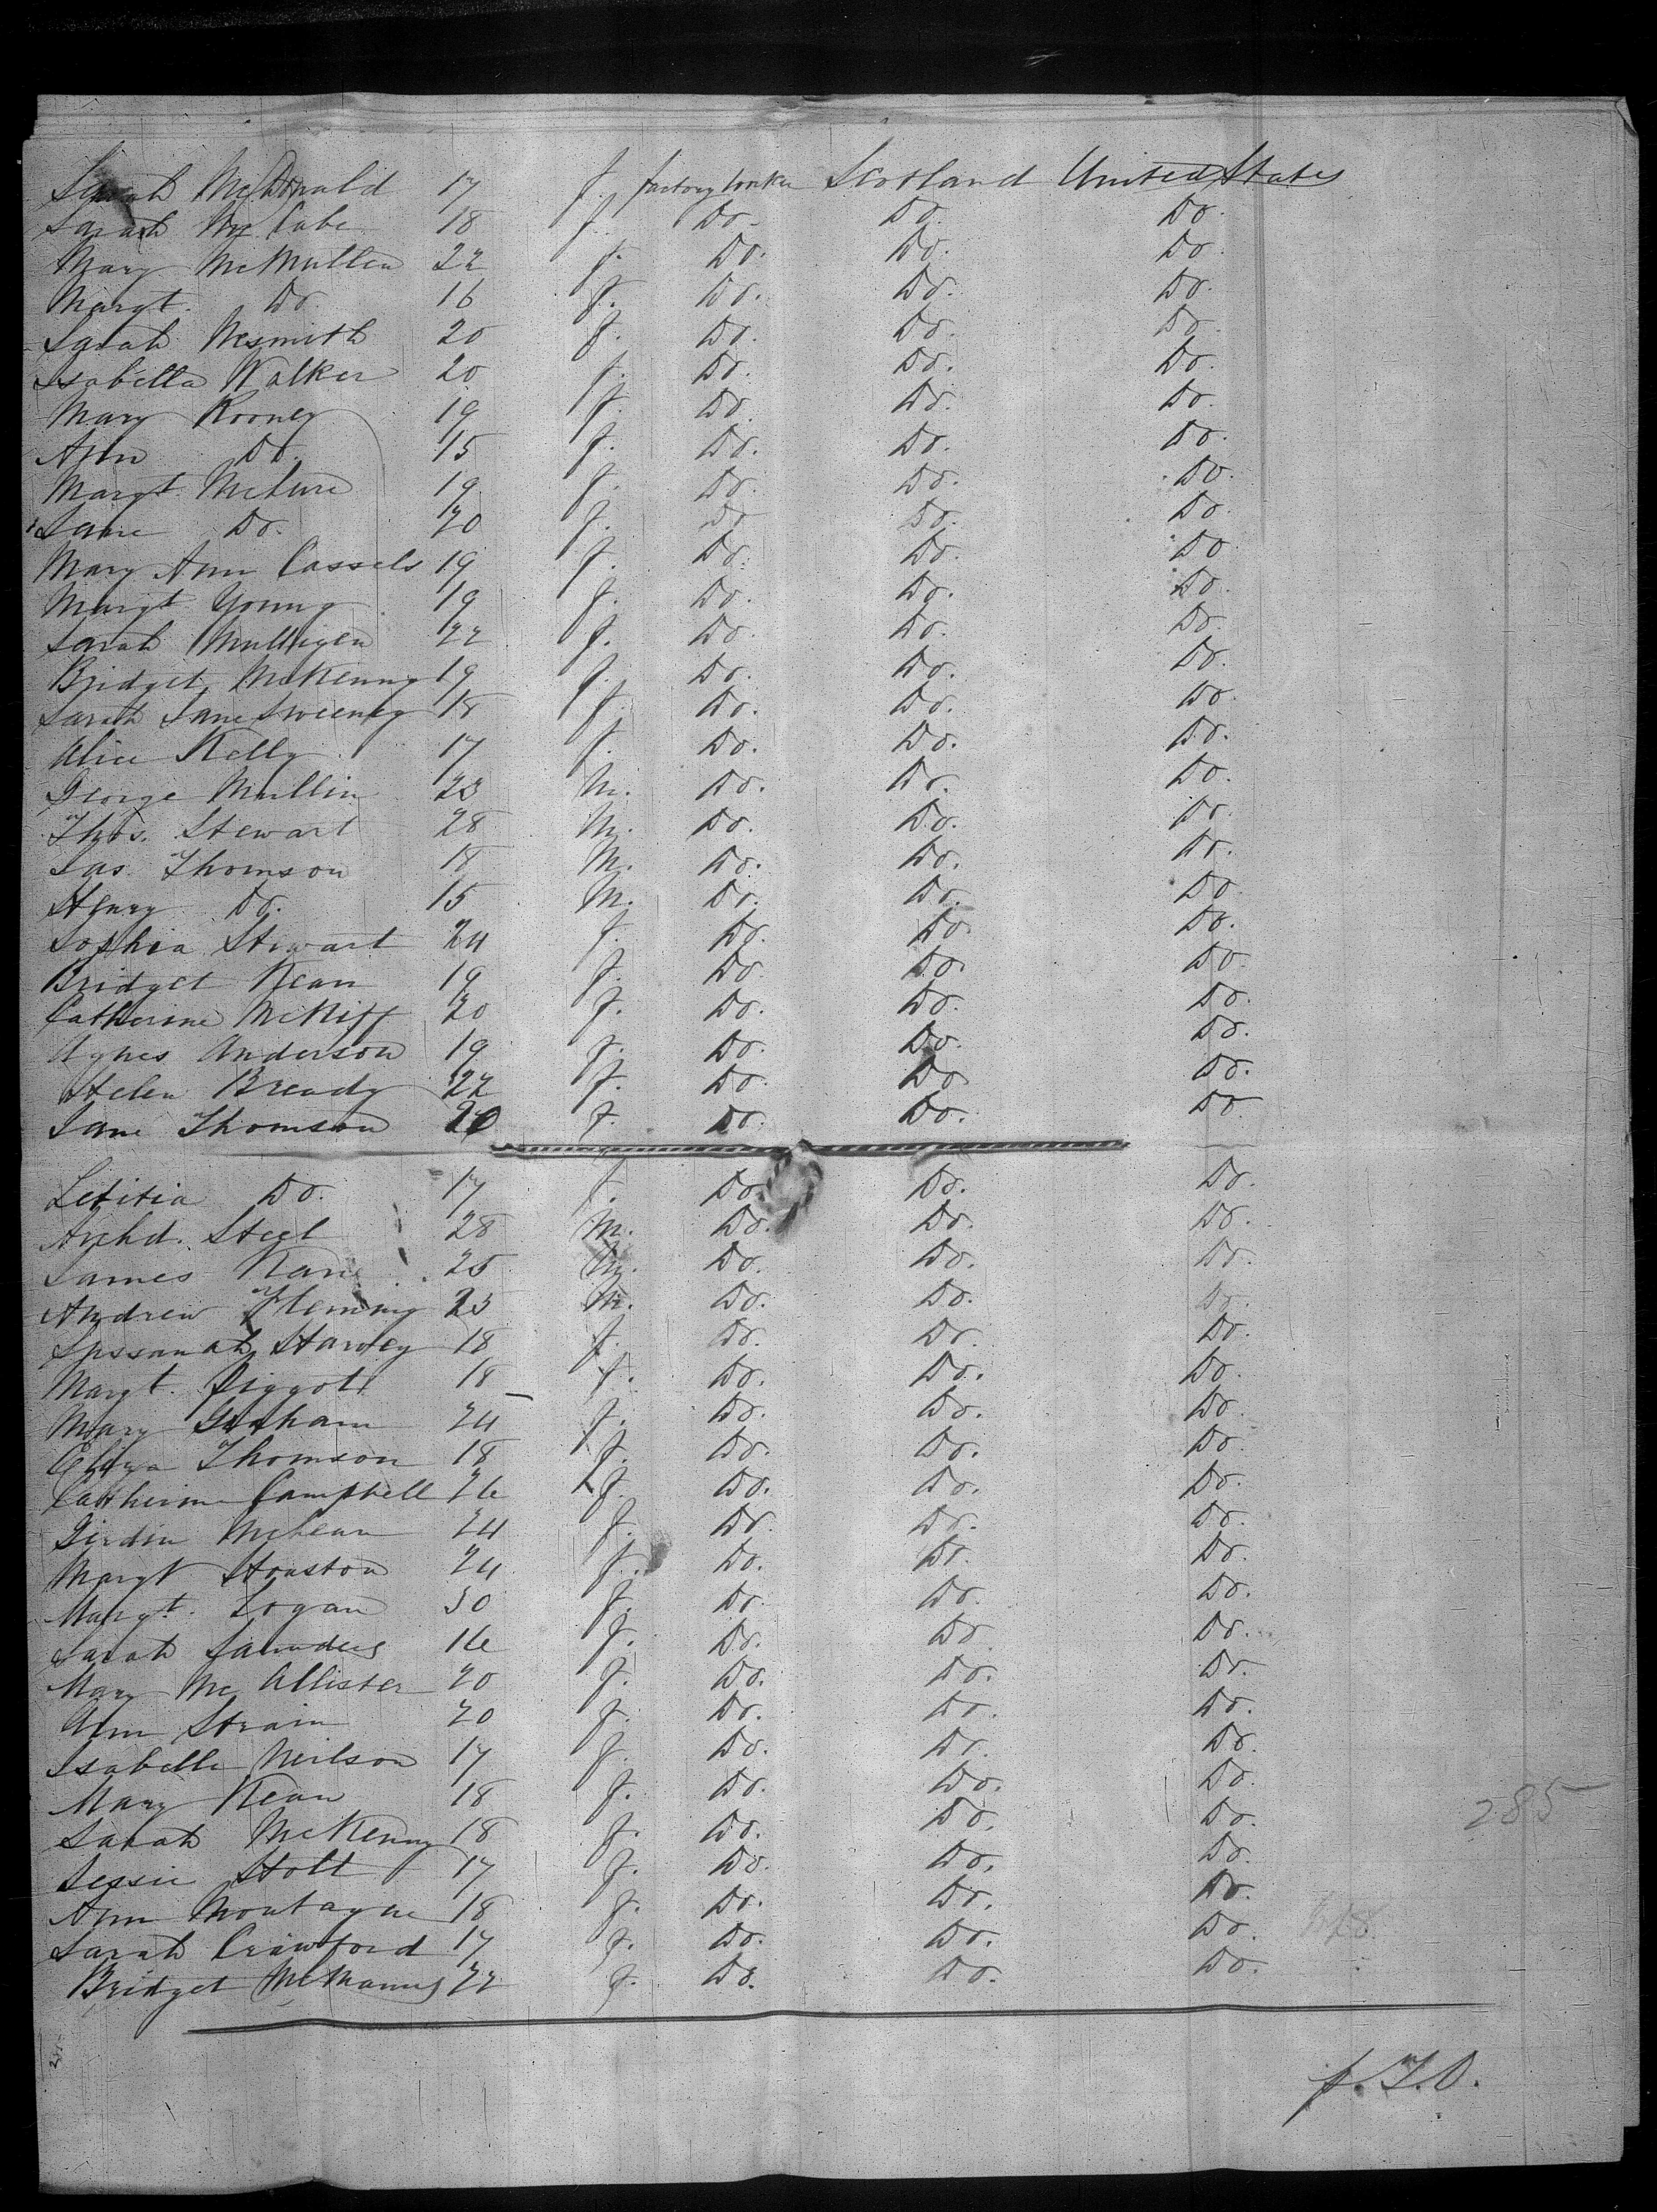 Sarah McDonald 17 f. factory worker Scotland United States
Sarah McCabe 18 f. Do. Do. Do.
Mary McMullen 22 f. Do. Do. Do.
Margt. Do. 16 f. Do. Do. Do.
Sarah Nesmith 20 f. Do. Do. Do.
Isabella Walker 20 f. Do. Do. Do.
Mary Rooney 19 f. Do. Do. Do.
Ann Do. 15 f. Do. Do. Do.
Margt. McLure 19 f. Do. Do. Do.
Jane Do. 20 f. Do. Do. Do.
Mary Ann Cassels 19 f. Do. Do. Do.
Margt Young 19 f. Do. Do. Do.
Sarah Mulligen 22 f. Do. Do. Do.
Bridget McKenny 19 f. Do. Do. Do.
Sarah Jane Sweeney 18 f. Do. Do. Do.
Alice Kelly 17 f. Do. Do. Do.
George Mullin 23 M. Do. Do. Do.
Thos. Stewart 28 M. Do. Do. Do.
Jas. Thomson 18 M. Do. Do. Do.
Henry Do. 15 M. Do. Do. Do.
Sophia Stewart 24 f. Do. Do. Do.
Bridget Kean 19 f. Do. Do. Do.
Catherine McKiff 20 f. Do. Do. Do.
Agnes Anderson 19 f. Do. Do. Do.
Helen Bready 22 f. Do. Do. Do.
Jane Thomson 20 f. Do. Do. Do.
Letitia Do. 17 f. Do. Do. Do.
Archd. Steel 28 M. Do. Do. Do.
James Kane 25 M. Do. Do. Do.
Andrew Fleming 23 M. Do. Do. Do.
Sussanah Harvey 18 f. Do. Do. Do.
Margt. Piggott 18 f. Do. Do. Do.
Mary Graham 24 f. Do. Do. Do.
Eliza Thomson 18 f. Do. Do. Do.
Catherine Campbell 26 f. Do. Do. Do.
McLean 24 f. Do. Do. Do.
Margt Houston 24 f. Do. Do. Do.
Margt. Logan 30 f. Do. Do. Do.
Sarah Saunders 16 f. Do. Do. Do.
Mary McAllister 20 f. Do. Do. Do.
Ann Strain 20 f. Do. Do. Do.
Isabella Neilson 17 f. Do. Do. Do.
Mary Kean 18 f. Do. Do. Do.
285
Sarah McKenny 18 f. Do. Do. Do.
Jessie Holt 17 f. Do. Do. Do.
Ann Montague 18 f. Do. Do. Do.
Sarah Crawford 17 f. Do. Do. Do.
Bridget McManus 22 f. Do. Do. Do.
P.T.O.